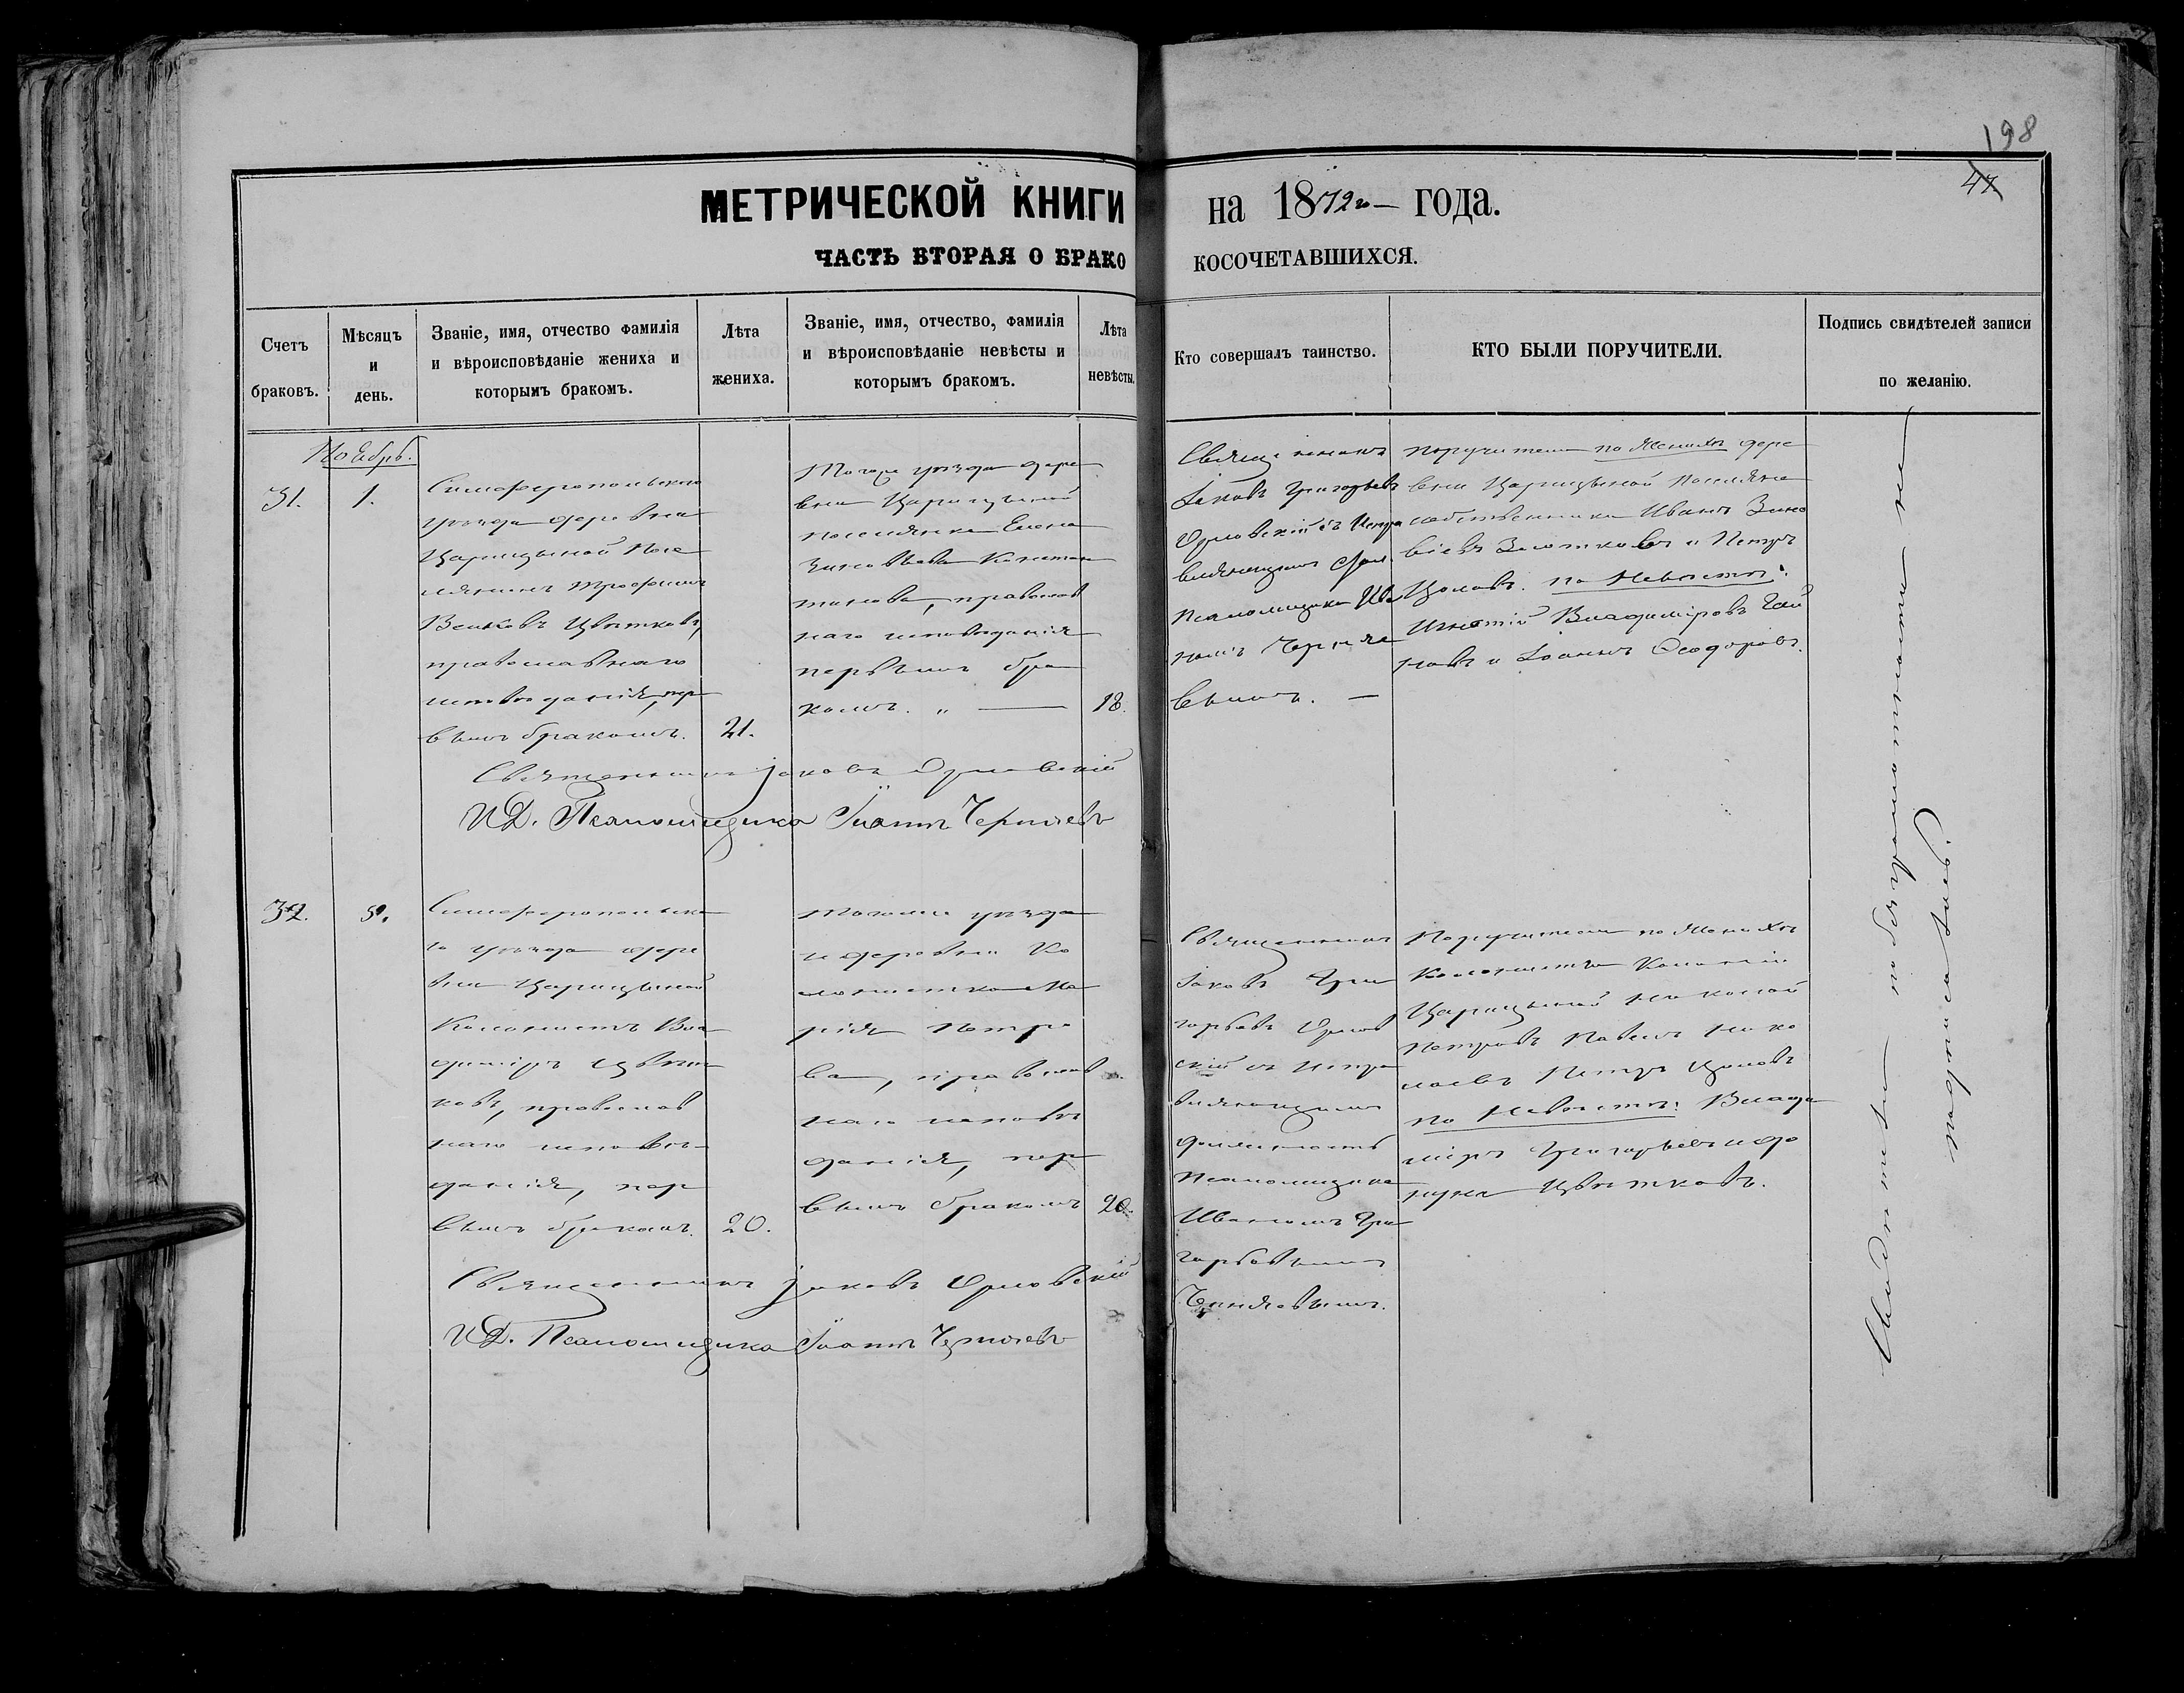 198
47
МЕТРИЧЕСКОЙ КНИГИ на 1872го года.
ЧАСТЬ ВТОРАЯ О БРАКОКОСОЧЕТАВШИХСЯ.
Счетъ браковъ.
Мѣсяцъ и день.
Званіе, имя, отчество фамилія
и вѣроисповѣданіе жениха и
которымъ бракомъ.
Лѣта
жениха.
Званіе, имя, отчество, фамилія
и вѣроисповѣданіе невѣсты и
которымъ бракомъ.
Лѣта
невѣсты.
Кто совершалъ таинство.
КТО БЫЛИ ПОРУЧИТЕЛИ.
Подпись свидѣтелей записи
по желанію.
Ноябрь.
31.
1.
Симферопольскаго
уѣзда деревни
Царицыной Посе
лянинъ Трофимъ
Велковъ Цвѣтковъ,
православнаго
исповѣданія, пер
вымъ бракомъ.
21.
Того же уѣзда дере
вни Царицыной
поселянка Елена
Зиновьева
православ
наго исповѣданія
первымъ бра
комъ. „ —
18.
Священникъ
Іаковъ Григорьевъ
Орловскій съ Испра
вляющимъ долж.
Псаломщика Ива
номъ Черняе
вымъ. —
Поручители по Женихѣ дере
вни Царицыной Поселяне
собственники Иванъ Зино
віевъ Златковъ и Петръ
Цоновъ. по Невѣстѣ:
Игнатій Владиміровъ
и Іоаннъ Ѳеодоровъ.
Священникъ Іаковъ Орловскій
И.Д. Псаломщика Іоаннъ Черняевъ
32.
5.
Симферопольска
го уѣзда дере
вни Царицыной
Колонистъ Вла
диміръ Цвѣт
ковъ, православ
наго исповѣ
данія, пер
вымъ бракомъ.
20.
Того же уѣзда
и деревни Ко
лонистка Ма
рія Петро
ва, православ
наго исповѣ
данія, пер
вымъ бракомъ
20.
Священникъ
Іаковъ Гри
горьевъ Орлов
скій съ Испра
вляющимъ
должность
Псаломщика
Иваномъ Гри
горьевымъ
Черняевымъ.
Поручители по Женихѣ
Колонисты Колоніи
Царицыной Николай
Петровъ Павелъ Нико
лаевъ Петръ Цоновъ
по Невѣстѣ: Влади
міръ Григорьевъ и
Цвѣтковъ.
Священникъ Іаковъ Орловскій
И.Д. Псаломщика Іоаннъ Черняевъ
Свидѣтели по безграмотности не
подписались.